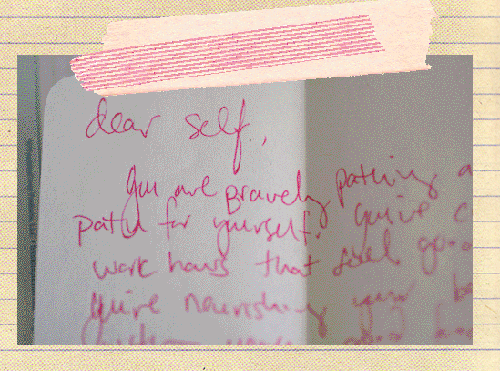 dear self,
You are bravely pathing a
path for yourself. You've c
work hours that feel goo
You're nourishing your b